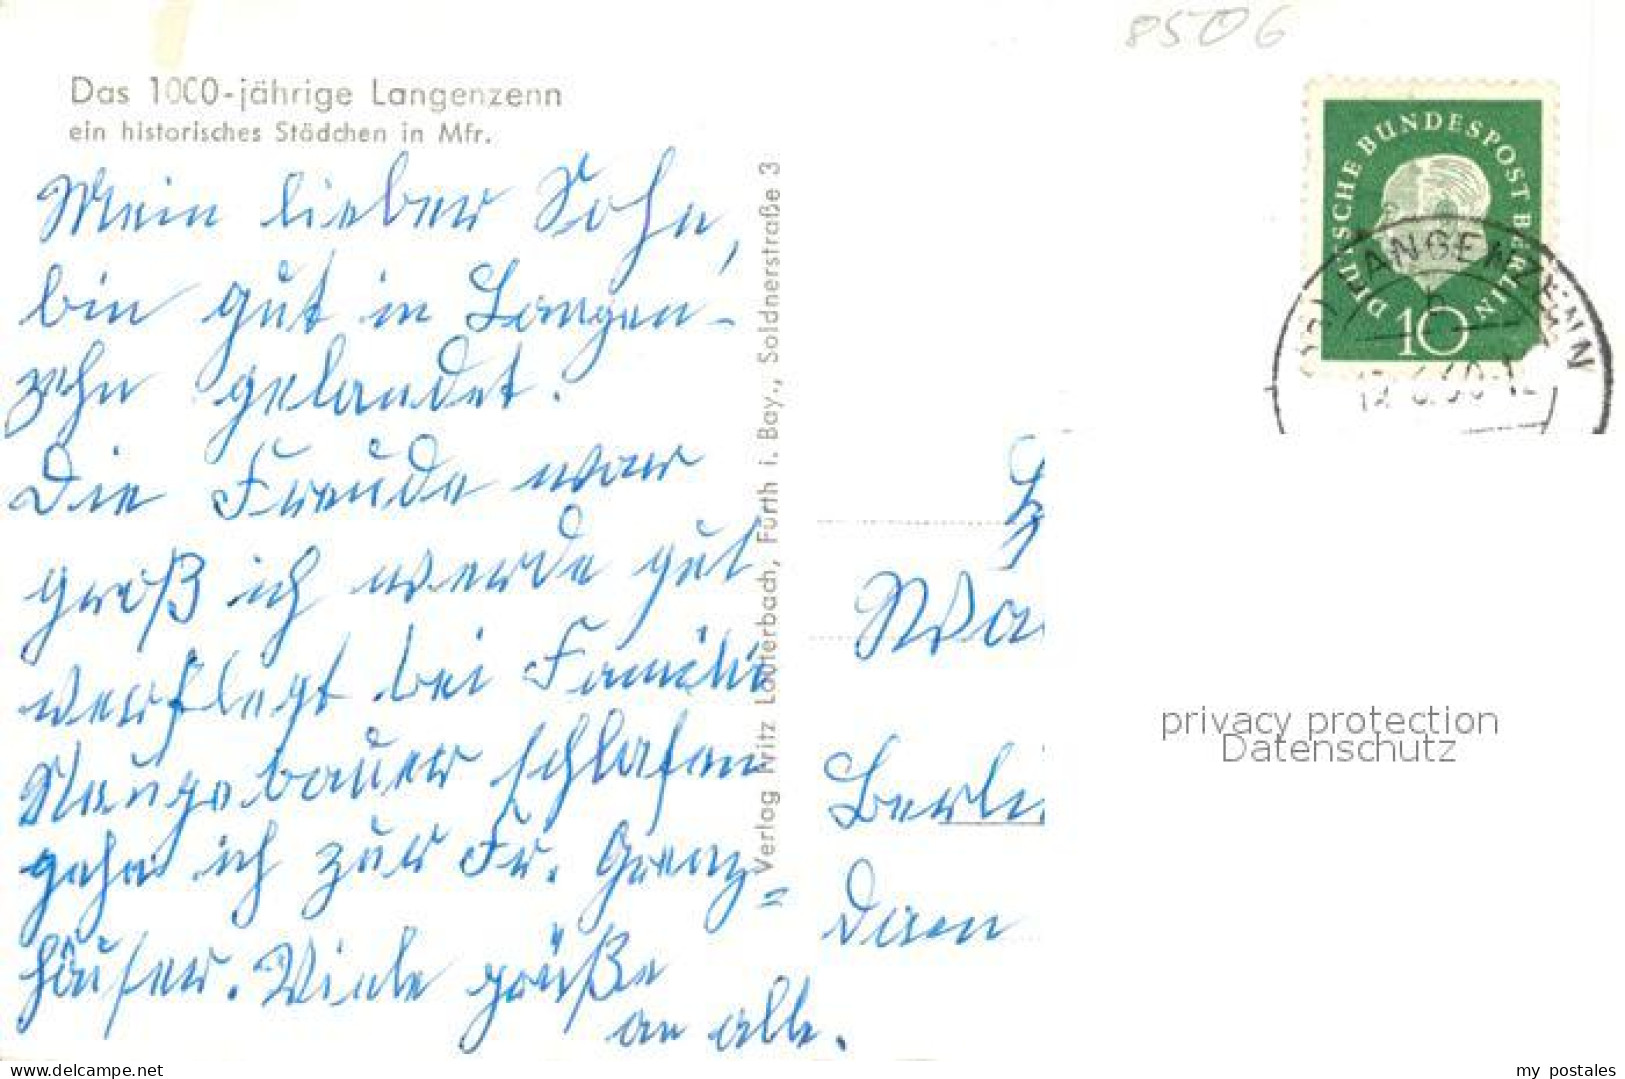 8506
Das 1000-jährige Langenzenn
ein historisches Städchen in Mfr.
Mein lieber Sohn,
bin gut in Langen-
zehn gelandet.
Die Freude war
groß ich werde gut
verflegt bei Familie
Naugebauer schlafen
gehe ich zur Fr. Grenz=
häuser. Viele grüße
an alle.
Verlag Fritz Lauterbach, Fürth i. Bay., Soldnerstraße 3
DEUTSCHE BUNDESPOST BERLIN
10
LANGENZENN
Berli
privacy protection
Datenschutz
www.delcampe.net
my_postales